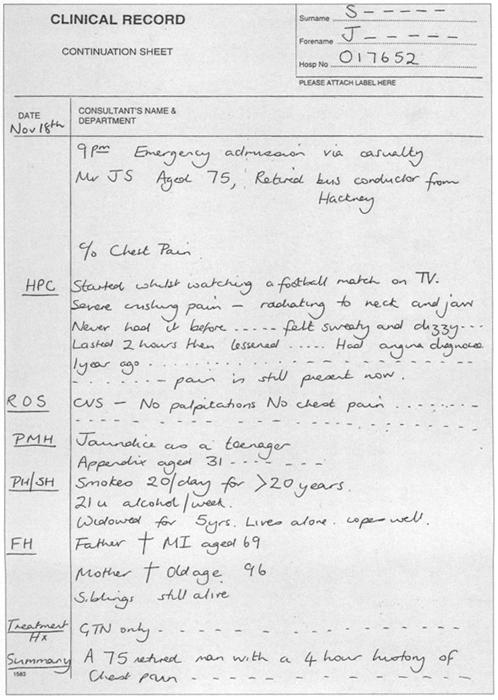 CLINICAL RECORD
CONTINUATION SHEET
Surname S-----
Forename J-----
Hosp No 017652
PLEASE ATTACH LABEL HERE
DATE
CONSULTANT'S NAME &
DEPARTMENT
Nov 18th
9pm Emergency admission via casualty
Mr JS Aged 75, Retired bus conductor from
Hackney
c/o Chest Pain
HPC Started whilst watching a football match on TV.
Severe crushing pain – radiating to neck and jaw
Never had it before ----- felt sweaty and dizzy---
Lasted 2 hours then lessened ..... Had angina diagnosed
1 year ago
pain is still present now.
ROS CVS – No palpitations No chest pain
PMH Jaundice as a teenager
Appendix aged 31
PH/SH Smokes 20/day for >20 years.
21 u alcohol/week.
Widowed for 5yrs. Lives alone. copes well.
FH Father † MI aged 69
Mother † Old age 96
Siblings still alive
Treatment
Hx
GTN only
Summary A 75 retired man with a 4 hour history of
Chest pain
1583